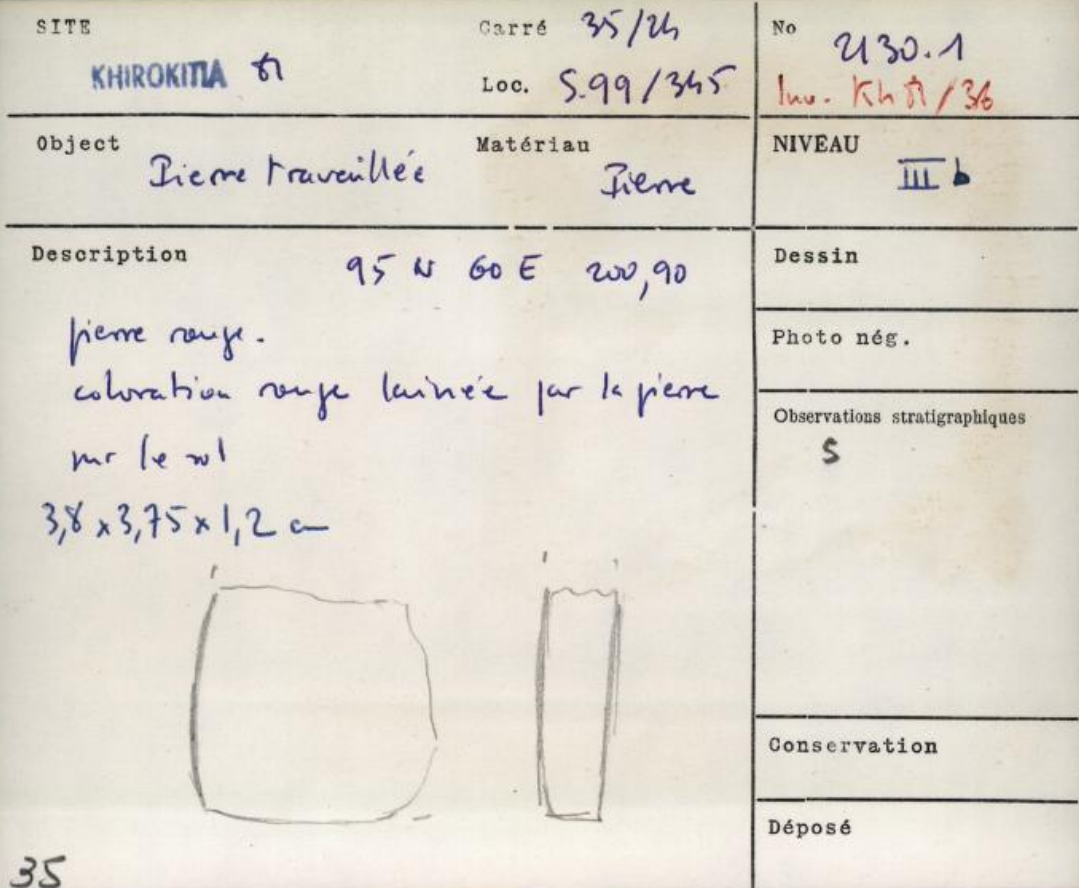 SITE
KHIROKITIA 81
Carré 35/24
Loc. S.99/345
No 2130.1
Inv. Kh 81/36
Object
Pierre travaillée
Matériau
Pierre
NIVEAU
III b
Description
95 N 60 E 200,90
pierre rouge.
coloration rouge laissée par la pierre
sur le sol
3,8 x 3,75 x 1,2 cm
Dessin
Photo nég.
Observations stratigraphiques
S
Conservation
Déposé
35